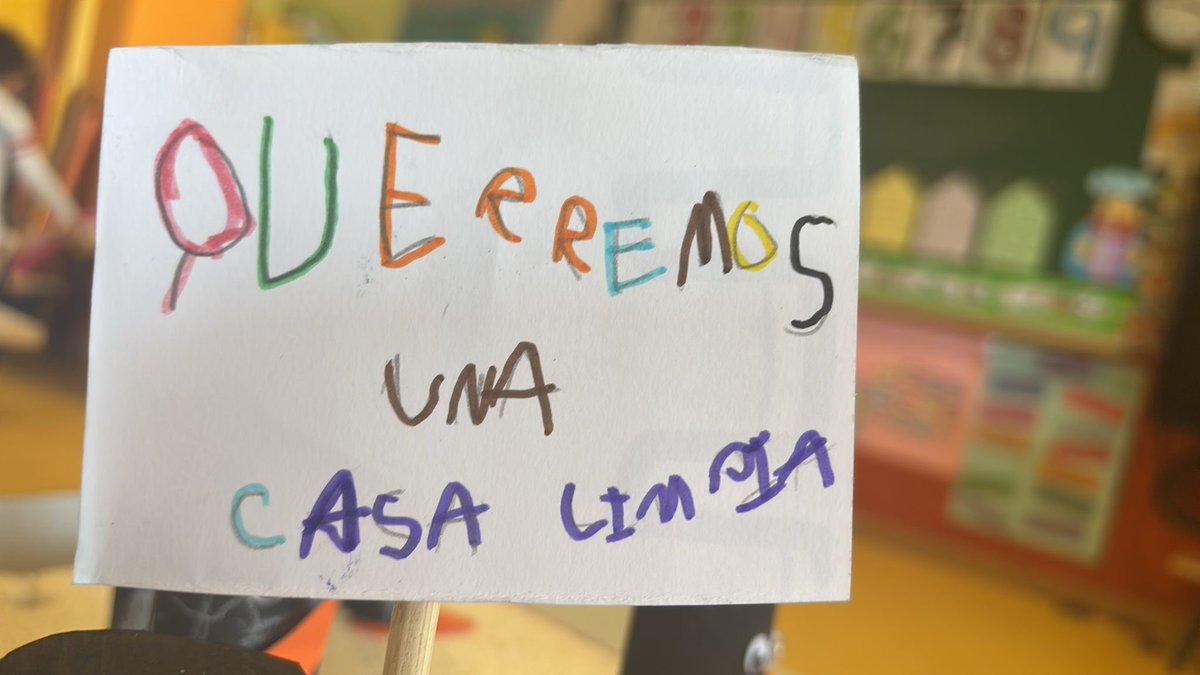 6 7 8 9
QUERREMOS
UNA
CASA LIMPIA